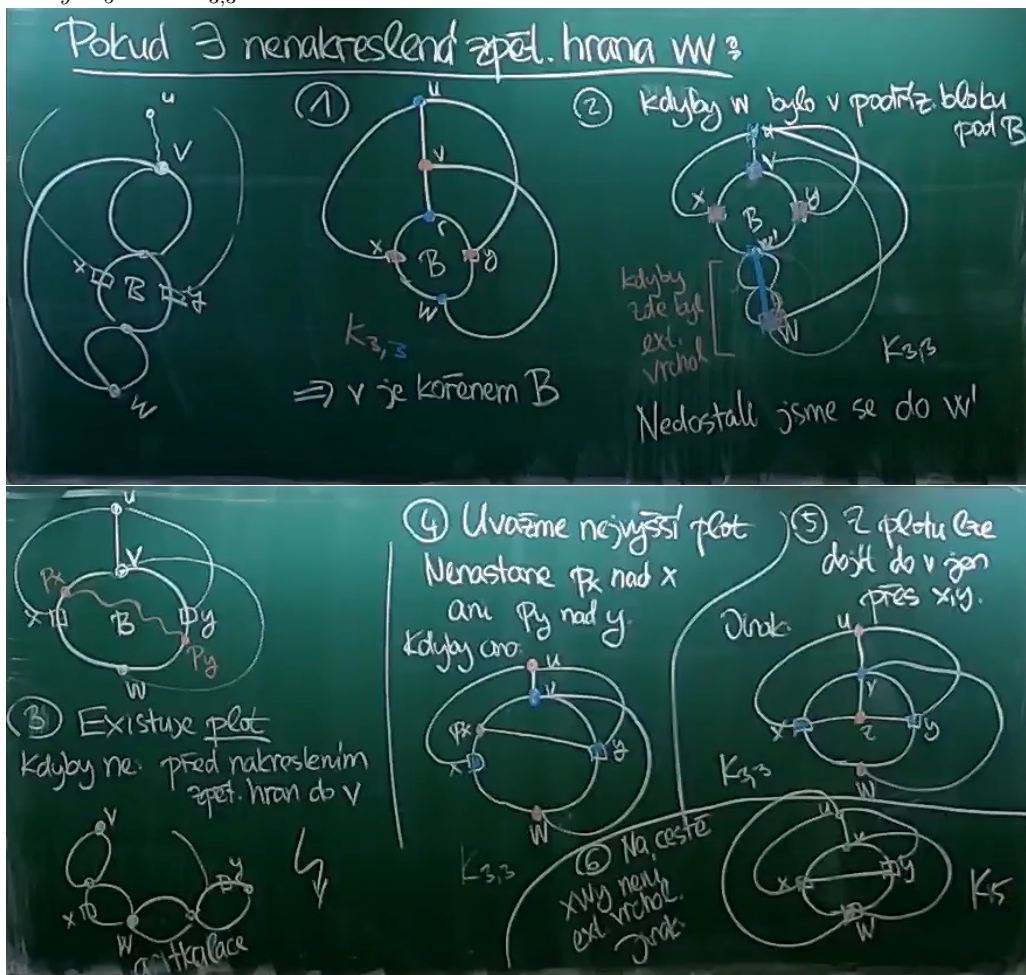 Pokud ∃ nenakreslená zpět. hrana vw:
u
v
x
B
y
w
①
u
v
r
x
B
y
w
K3,3
⇒ v je kořenem B
② kdyby w bylo v podříz. bloku
pod B
u
v
x
B
y
w'
kdyby
zde byl
ext.
vrchol
w
K3,3
Nedostali jsme se do w'
u
v
Px
x
B
y
Py
w
③ Existuje plot
kdyby ne: před nakreslením
zpět. hran do v
v
x
y
w
artikulace
④ Uvažme nejvyšší plot
Nenastane Px nad x
ani Py nad y.
kdyby ano:
u
v
Px
x
y
w
K3,3
⑤ Z plotu lze
dojít do v jen
přes x,y.
Jinak:
u
v
x
z
y
w
K3,3
⑥ Na cestě
xwy není
ext. vrchol.
Jinak:
u
v
x
y
w
K5